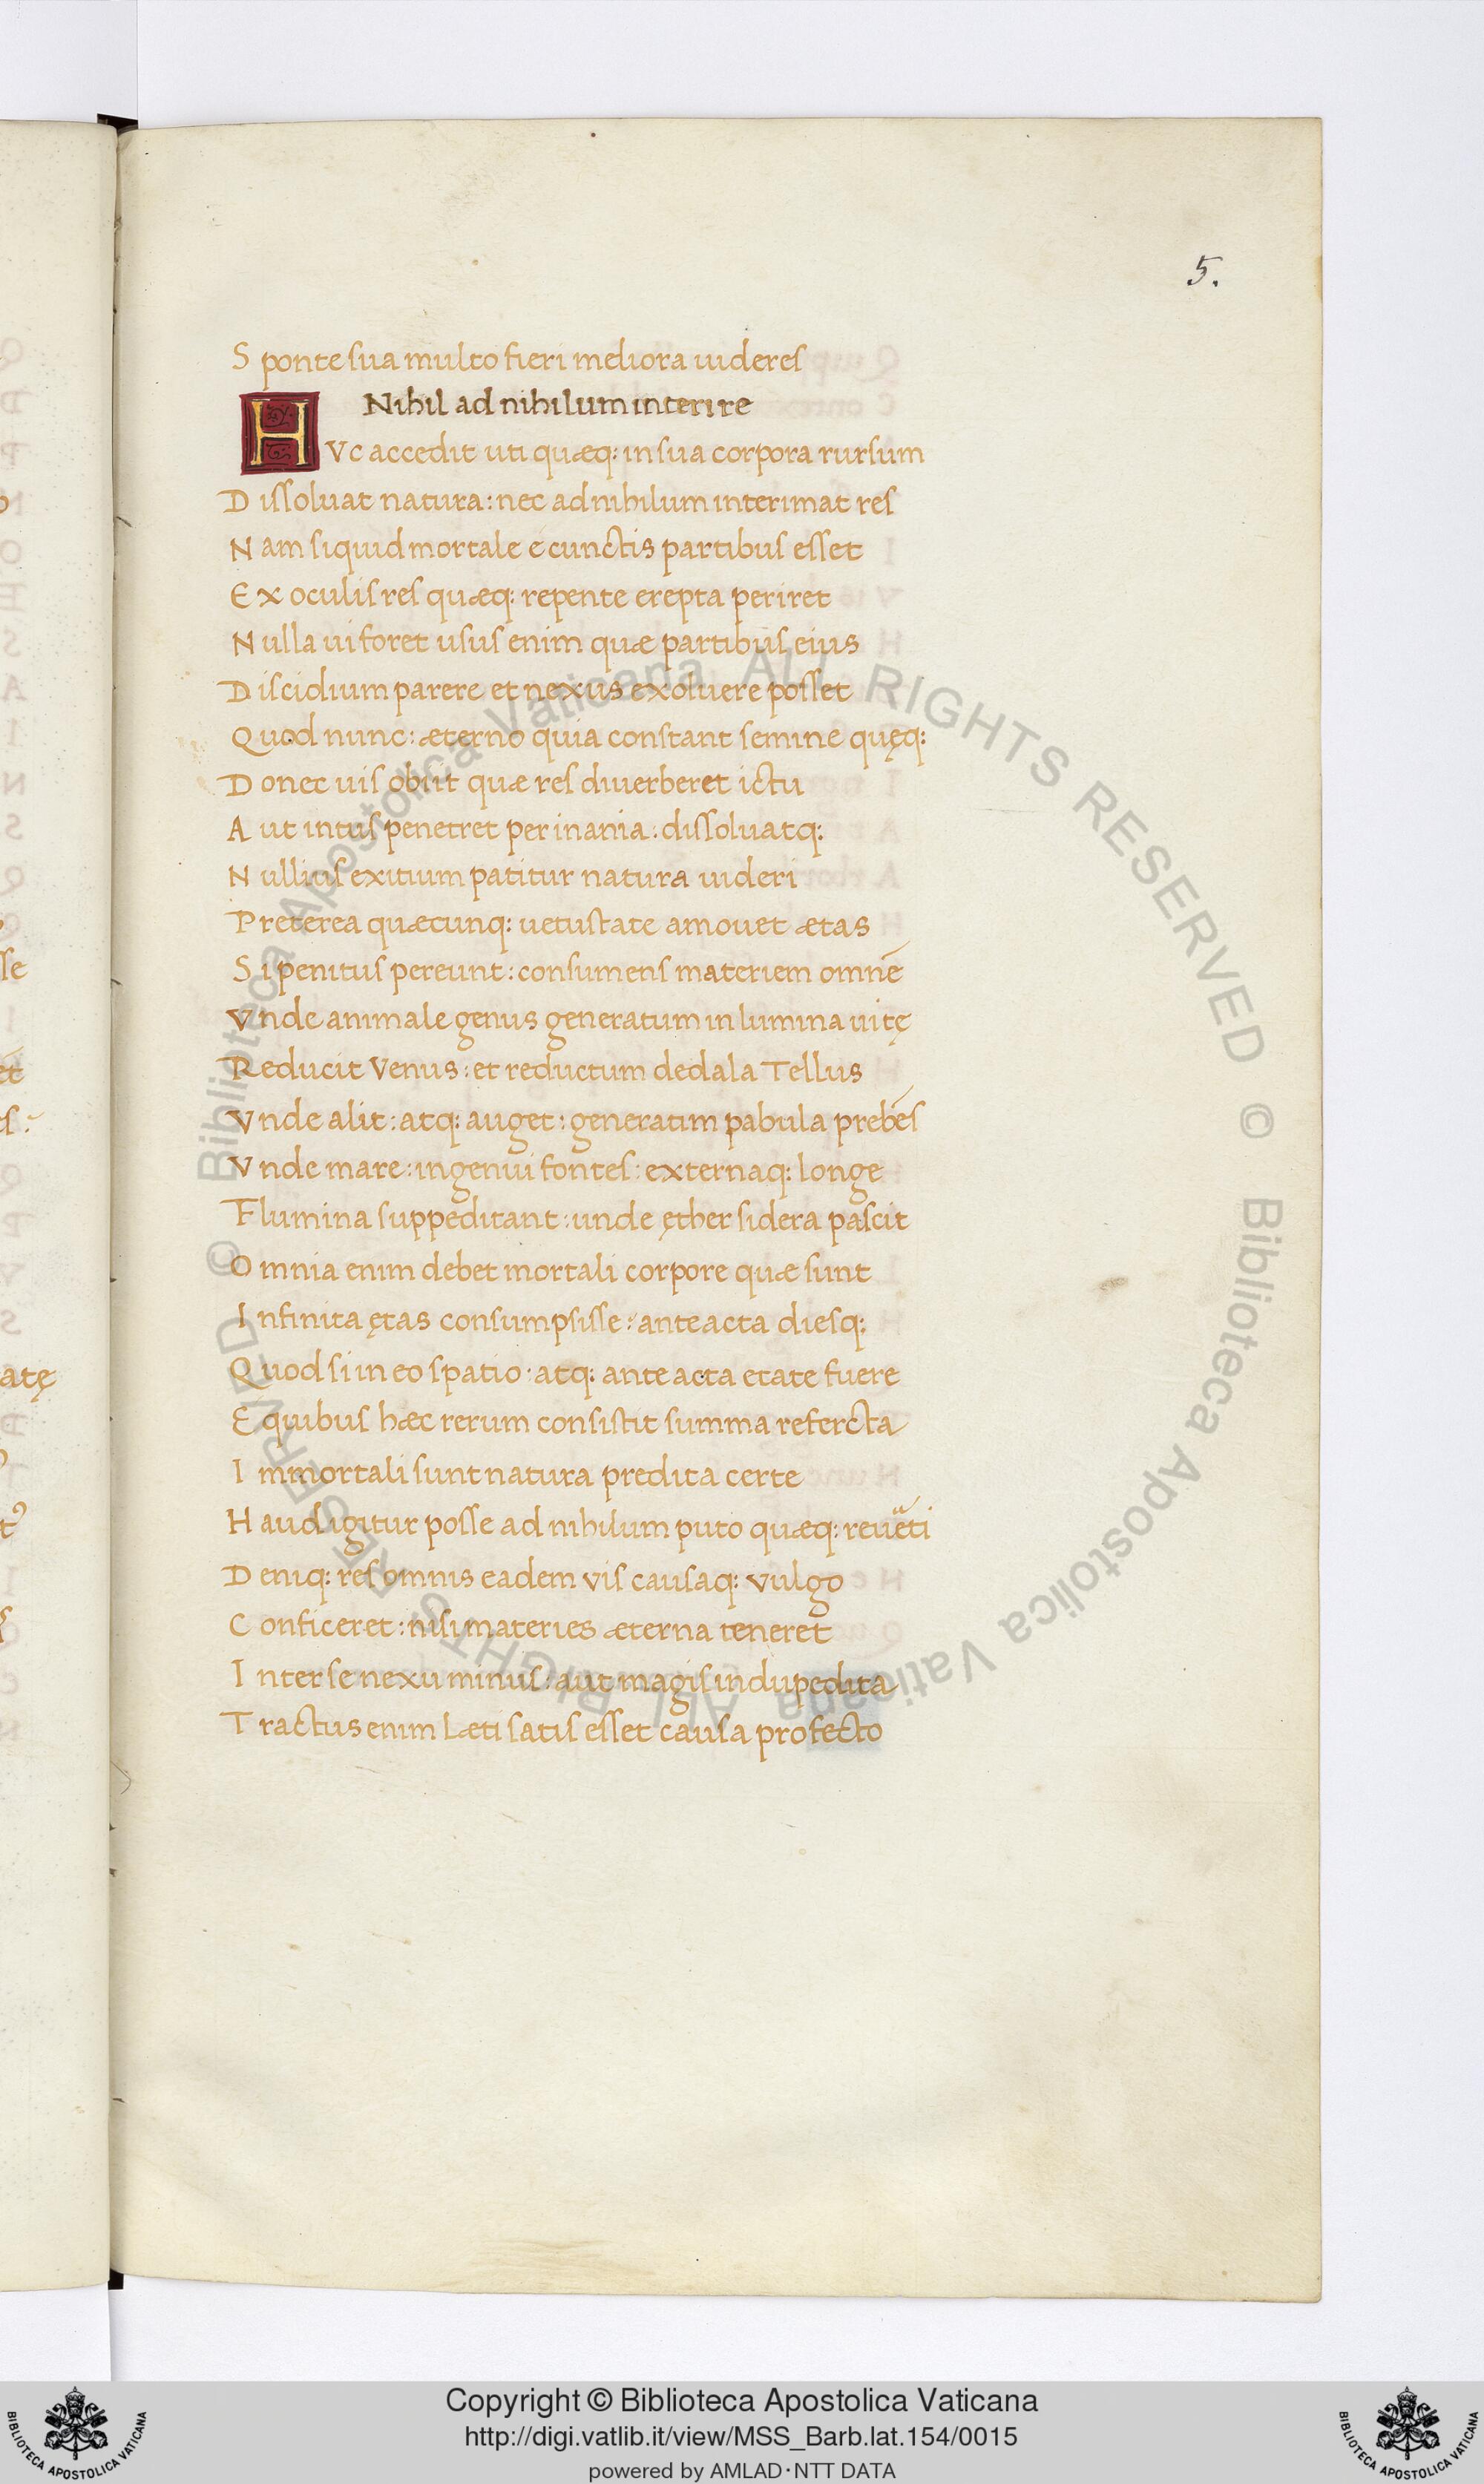 5.
S ponte sua multo fieri meliora uideres
Nihil ad nihilum interire
HVc accedit uti quæq: in sua corpora rursum
D issoluat natura: nec ad nihilum interimat res
N am siquid mortale e cunctis partibus esset
E x oculis res quæq: repente erepta periret
N ulla ui foret usus enim quæ partibus eius
D iscidium parere et nexus exoluere posset
Q uod nunc: æterno quia constant semine quęq:
D onec uis obiit quæ res diuerberet ictu
A ut intus penetret per inania: dissoluatq:
N ullius exitium patitur natura uideri
P reterea quæcunq: uetustate amouet ætas
S i penitus pereunt: consumens materiem omnē
V nde animale genus generatum in lumina uitę
R educit Venus: et reductum dedala Tellus
V nde alit: atq: auget: generatim pabula prebēs
V nde mare: ingenui fontes: externaq: longe
F lumina suppeditant: unde ęther sidera pascit
O mnia enim debet mortali corpore quæ sunt
I nfinita ętas consumpsisse: anteacta diesq:
Q uod si in eo spatio: atq: ante acta etate fuere
E quibus hæc rerum consistit summa refercta
I mmortali sunt natura predita certe
H aud igitur posse ad nihilum puto quæq: reuẽti
D eniq: res omnis eadem vis causaq: vulgo
C onficeret: nisi materies æterna teneret
I nter se nexu minus: aut magis indupedita
T ractus enim Læti satis esset causa profecto
© Biblioteca Apostolica Vaticana ALL RIGHTS RESERVED © Biblioteca Apostolica Vaticana ALL RIGHTS RESERVED
Copyright © Biblioteca Apostolica Vaticana
http://digi.vatlib.it/view/MSS_Barb.lat.154/0015
powered by AMLAD·NTT DATA
BIBLIOTECA APOSTOLICA VATICANA
BIBLIOTECA APOSTOLICA VATICANA